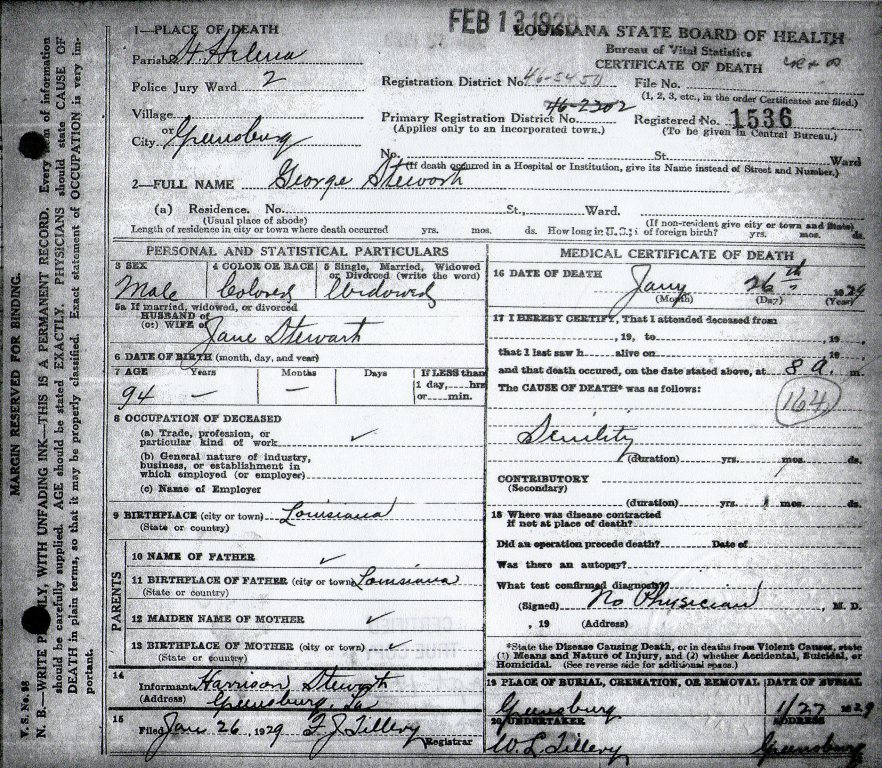 FEB 13 1929
1—PLACE OF DEATH
LOUISIANA STATE BOARD OF HEALTH
Bureau of Vital Statistics
CERTIFICATE OF DEATH
Parish St. Helena
Police Jury Ward 2
Registration District No. 46-5450
File No.
(1, 2, 3, etc., in the order Certificates are filed.)
46-2302
Village
or
City Greensburg
Primary Registration District No.
(Applies only to an incorporated town.)
Registered No. 1536
(To be given in Central Bureau.)
No. St. Ward
(If death occurred in a Hospital or Institution, give its Name instead of Street and Number.)
2—FULL NAME George Stewart
(a) Residence. No. St., Ward.
(Usual place of abode) (If non-resident give city or town and State)
Length of residence in city or town where death occurred yrs. mos. ds. How long in U. S., if of foreign birth? yrs. mos. ds.
PERSONAL AND STATISTICAL PARTICULARS
3 SEX
Male
4 COLOR OR RACE
Colored
5 Single, Married, Widowed
or Divorced (write the word)
Widowed
5a If married, widowed, or divorced
HUSBAND of
(or) WIFE of Jane Stewart
6 DATE OF BIRTH (month, day, and year)
7 AGE Years Months Days If LESS than
1 day, hrs
or min.
94 — —
8 OCCUPATION OF DECEASED
(a) Trade, profession, or
particular kind of work ✓
(b) General nature of industry,
business, or establishment in
which employed (or employer)
(c) Name of Employer
9 BIRTHPLACE (city or town) Louisiana
(State or country)
PARENTS
10 NAME OF FATHER ✓
11 BIRTHPLACE OF FATHER (city or town) Louisiana
(State or country)
12 MAIDEN NAME OF MOTHER ✓
13 BIRTHPLACE OF MOTHER (city or town) ✓
(State or country)
14
Informant Harrison Stewart
(Address) Greensburg, La
15
Filed Jan 26, 1929 F J Tillery
Registrar
MEDICAL CERTIFICATE OF DEATH
16 DATE OF DEATH Jany 26th 1929
(Month) (Day) (Year)
17 I HEREBY CERTIFY, That I attended deceased from
, 19 , to , 19
that I last saw h alive on , 19
and that death occured, on the date stated above, at 8 a. m.
The CAUSE OF DEATH* was as follows:
164
Senility
(duration) yrs. mos. ds.
CONTRIBUTORY
(Secondary)
(duration) yrs. mos. ds.
18 Where was disease contracted
if not at place of death?
Did an operation precede death? Date of
Was there an autopsy?
What test confirmed diagnosis?
(Signed) No Physician, M. D.
, 19 (Address)
*State the Disease Causing Death, or in deaths from Violent Causes, state
(1) Means and Nature of Injury, and (2) whether Accidental, Suicidal, or
Homicidal. (See reverse side for additional space.)
19 PLACE OF BURIAL, CREMATION, OR REMOVAL DATE OF BURIAL
Greensburg 1/27 1929
20 UNDERTAKER ADDRESS
W. L. Tillery Greensburg
V. S. No. 36
MARGIN RESERVED FOR BINDING.
N. B.—WRITE PLAINLY, WITH UNFADING INK—THIS IS A PERMANENT RECORD. Every item of information
should be carefully supplied. AGE should be stated EXACTLY. PHYSICIANS should state CAUSE OF
DEATH in plain terms, so that it may be properly classified. Exact statement of OCCUPATION is very im-
portant.